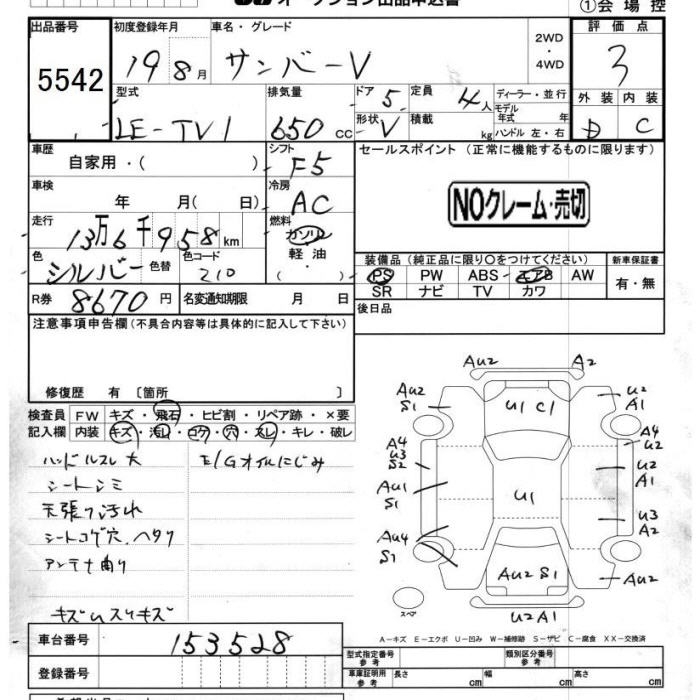 オークション出品申込書
①会場控
出品番号 初度登録年月 車名・グレード 2WD・4WD 評価点
5542 19 8月 サンバーV 3
型式 排気量 ドア 5 定員 4人 ディーラー・並行 外装 内装
LE-TV1 650 cc 形状 V 積載 kg モデル年式 年 ハンドル 左・右 D C
車歴 シフト セールスポイント (正常に機能するものに限ります)
自家用・( ) F5
車検 冷房
年 月( 日) AC NOクレーム・売切
走行 燃料
13万6千958km ガソリン
軽油・( )
色 色替 色コード 装備品(純正品に限り○をつけてください) 新車保証書
シルバー 210 PS PW ABS エアB AW 有・無
SR ナビ TV カワ
R券 8670円 名変通知期限 月 日 後日品
注意事項申告欄(不具合内容等は具体的に記入して下さい)
修復歴 有 〔箇所 〕
検査員 FW キズ・飛石・ヒビ割・リペア跡・×要
記入欄 内装 キズ・汚れ・コゲ・穴・スレ・キレ・破レ
ハンドルスレ大 E/Gオイルにじみ
シートシミ
天張り汚れ
シートコゲ穴、ヘタリ
アンテナ曲り
キズUスリキズ
AU2 A2
AU2 S1 U2 A1
U1 C1
A4 U3 S2 A4 U2
AU1 S1 U2 A1
U1
AU4 S1 U3 A2
AU2 S1 AU2
スペア U2A1
A-キズ E-エクボ U-凹み W-補修跡 S-サビ C-腐食 XX-交換済
車台番号 153528
型式指定番号 参考 類別区分番号 参考
登録番号 車庫証明用 参考 長さ cm 幅 cm 高さ cm